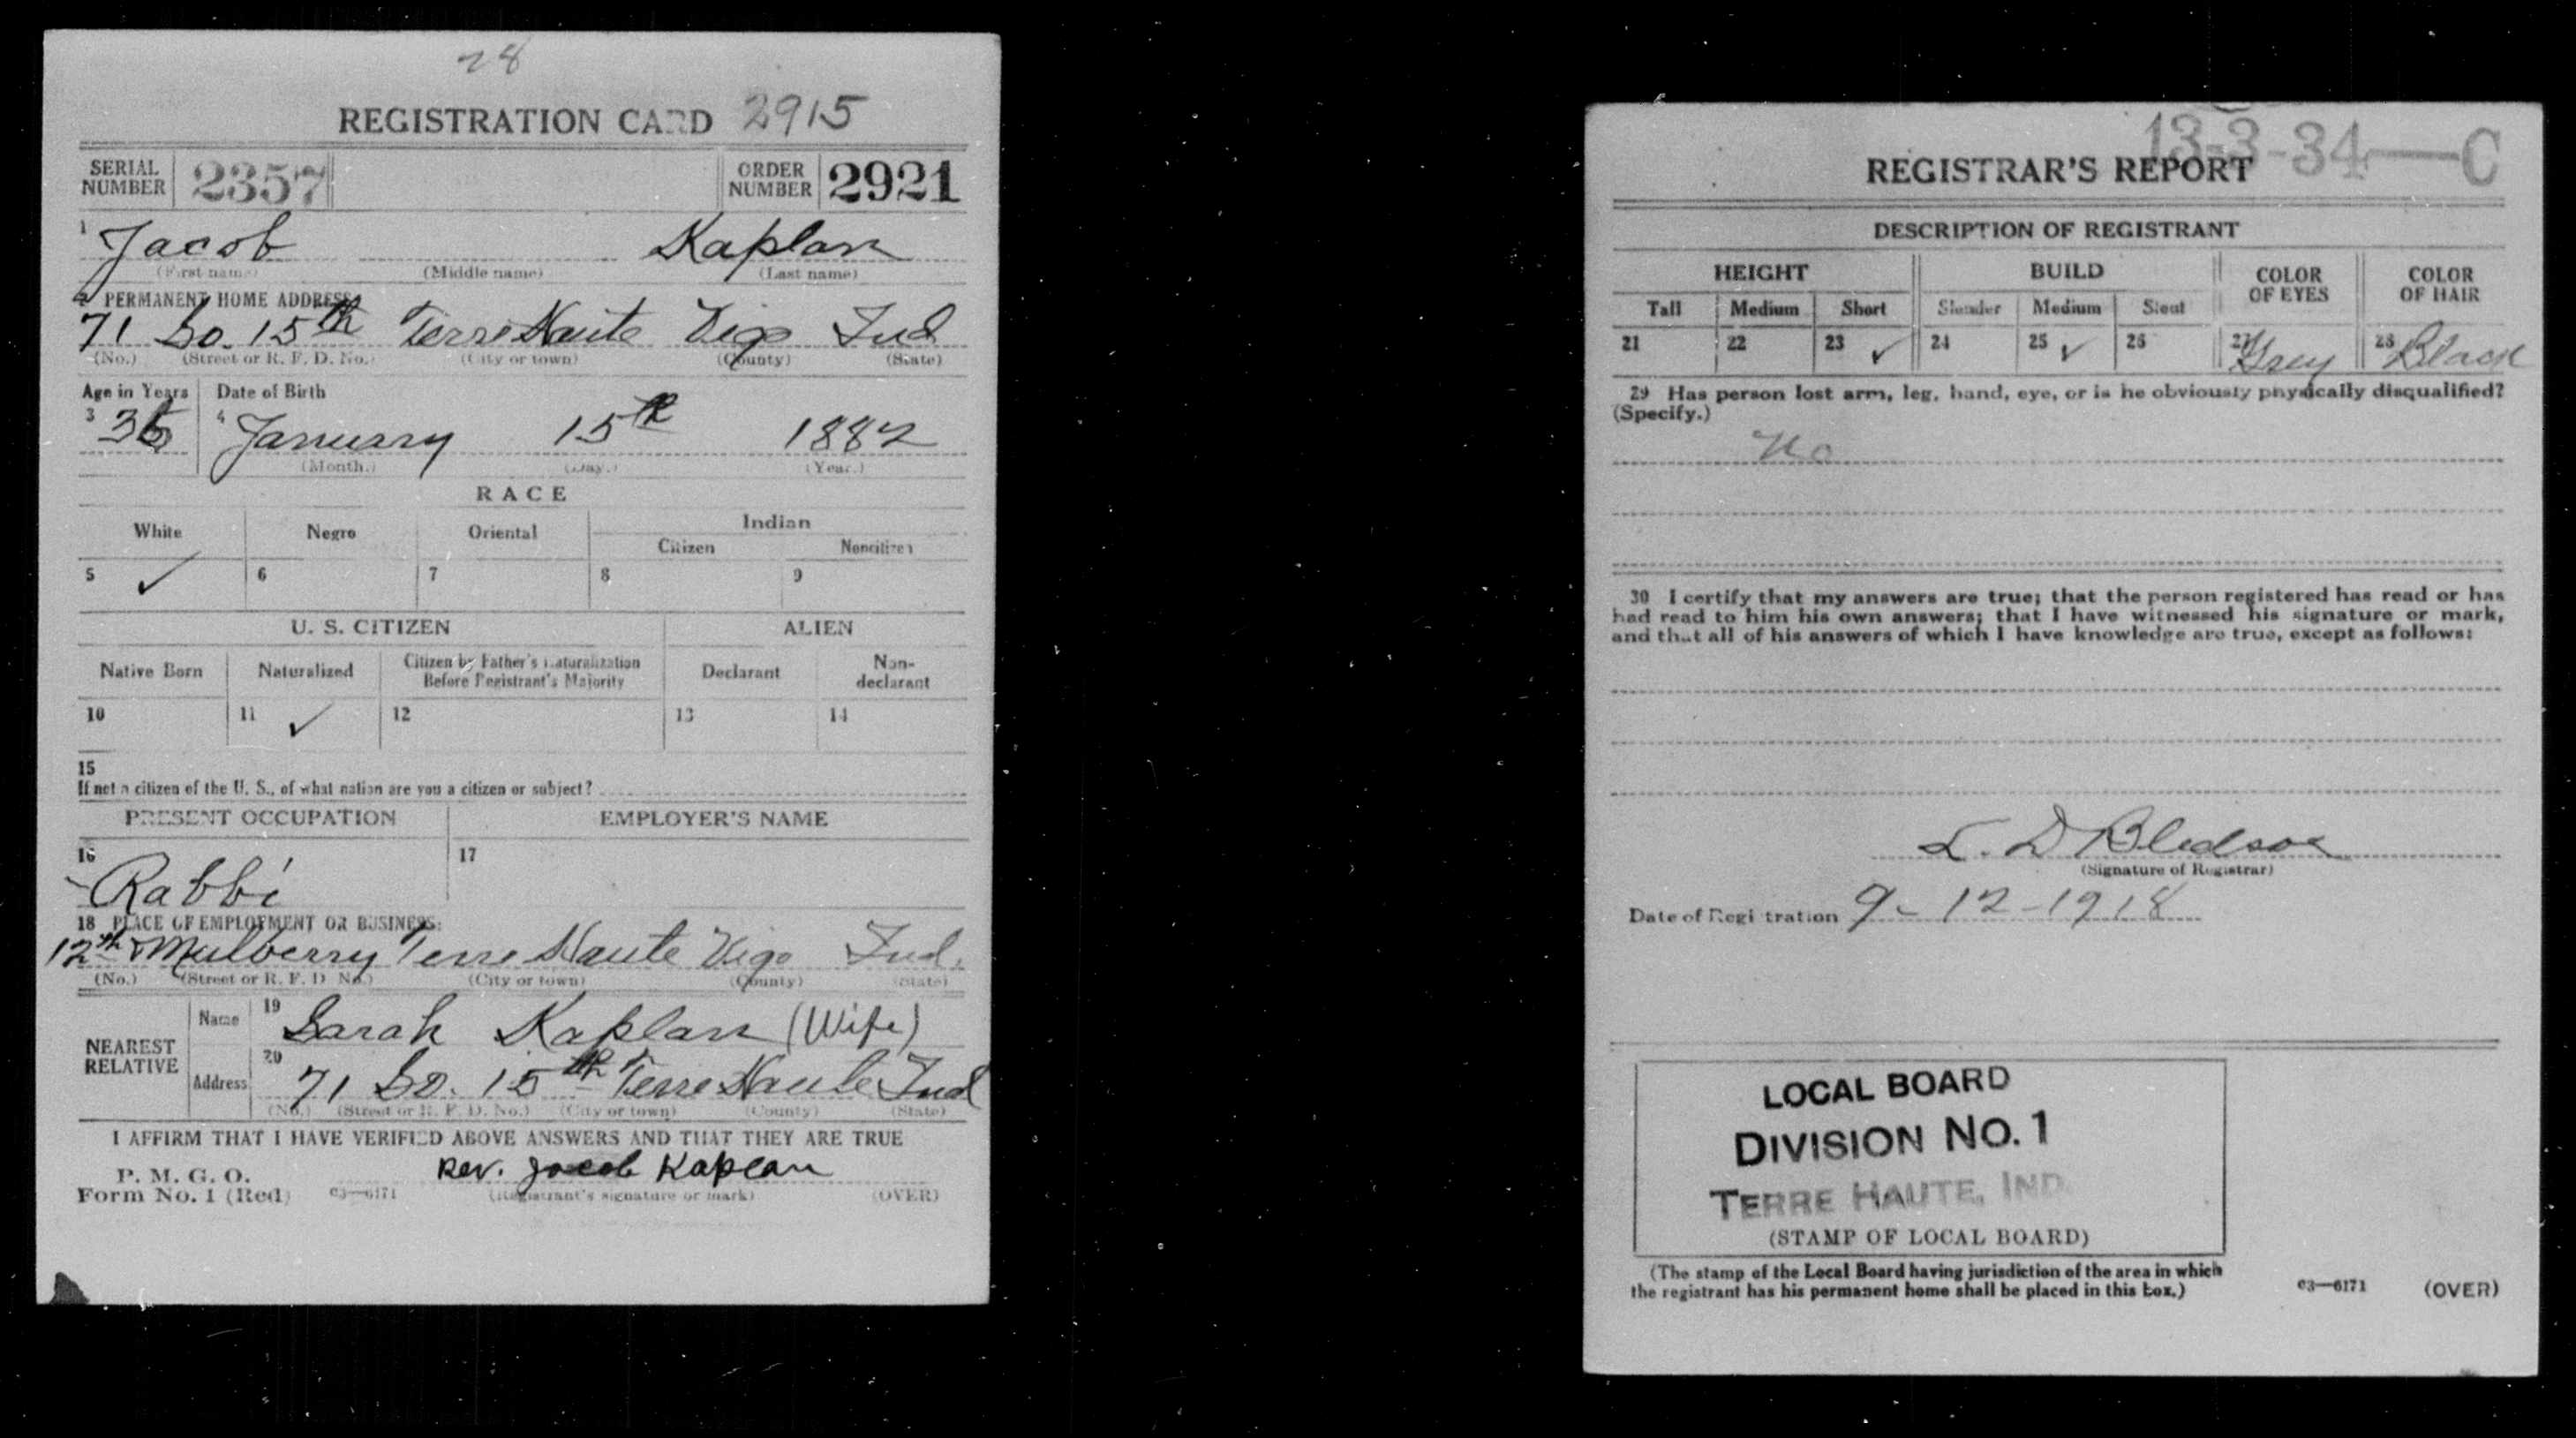 28
REGISTRATION CARD 2915
SERIAL NUMBER 2357 ORDER NUMBER 2921
1 Jacob Kaplan
(First name) (Middle name) (Last name)
2 PERMANENT HOME ADDRESS:
71 So. 15th Terre Haute Vigo Ind
(No.) (Street or R. F. D. No.) (City or town) (County) (State)
Age in Years Date of Birth
3 36 4 January 15th 1882
(Month.) (Day.) (Year.)
RACE
White Negro Oriental Indian
Citizen Noncitizen
5 ✓ 6 7 8 9
U. S. CITIZEN ALIEN
Native Born Naturalized Citizen by Father's Naturalization Before Registrant's Majority Declarant Non-declarant
10 11 ✓ 12 13 14
15
If not a citizen of the U. S., of what nation are you a citizen or subject?
PRESENT OCCUPATION EMPLOYER'S NAME
16 17
Rabbi
18 PLACE OF EMPLOYMENT OR BUSINESS:
12th & Mulberry Terre Haute Vigo Ind.
(No.) (Street or R. F. D. No.) (City or town) (County) (State)
NEAREST RELATIVE
Name 19 Sarah Kaplan (Wife)
Address 20 71 So. 15th Terre Haute Ind
(No.) (Street or R. F. D. No.) (City or town) (County) (State)
I AFFIRM THAT I HAVE VERIFIED ABOVE ANSWERS AND THAT THEY ARE TRUE
P. M. G. O.
Form No. 1 (Red) 03—6171 Rev. Jacob Kaplan
(Registrant's signature or mark) (OVER)
13-3-34—C
REGISTRAR'S REPORT
DESCRIPTION OF REGISTRANT
HEIGHT BUILD COLOR OF EYES COLOR OF HAIR
Tall Medium Short Slender Medium Stout
21 22 23 ✓ 24 25 ✓ 26 27 Grey 28 Black
29 Has person lost arm, leg, hand, eye, or is he obviously physically disqualified?
(Specify.)
No
30 I certify that my answers are true; that the person registered has read or has
had read to him his own answers; that I have witnessed his signature or mark,
and that all of his answers of which I have knowledge are true, except as follows:
L. D Bledsoe
(Signature of Registrar)
Date of Registration 9-12-1918
LOCAL BOARD
DIVISION NO. 1
TERRE HAUTE, IND.
(STAMP OF LOCAL BOARD)
(The stamp of the Local Board having jurisdiction of the area in which
the registrant has his permanent home shall be placed in this box.)
03—6171 (OVER)